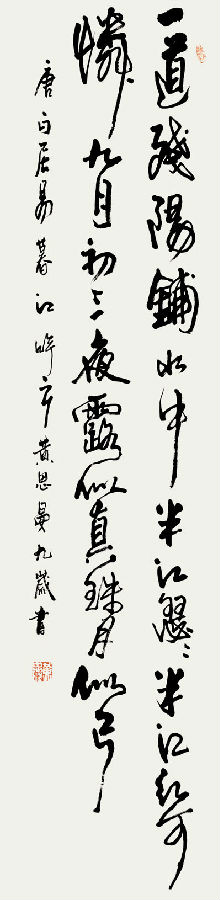 一道殘陽鋪水中半江瑟〻半江紅可
憐九月初三夜露似真珠月似弓
唐白居易暮江吟黄恩曼九歲書